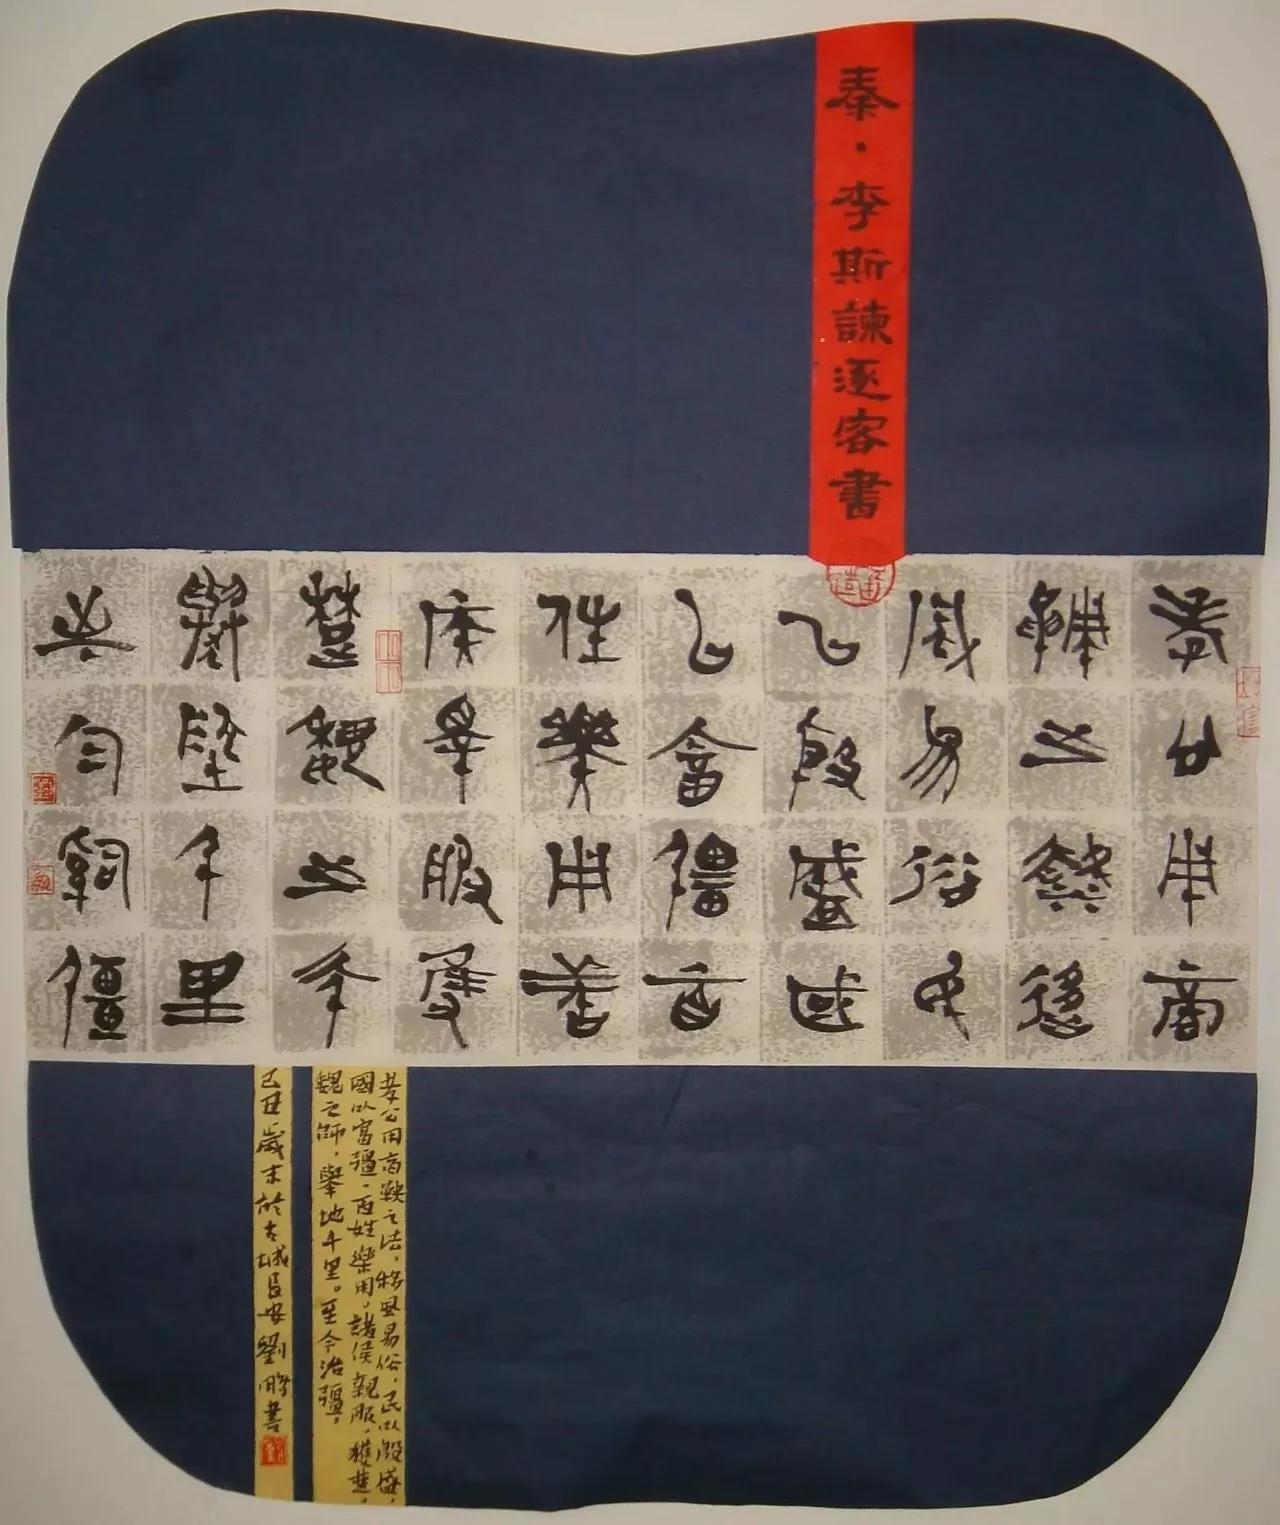 秦·李斯諫逐客書
孝公用商
鞅之法移
風易俗民
以殷盛國
以富彊百
姓樂用諸
侯親服獲
楚魏之師
舉地千里
至今治彊
孝公用商鞅之法，移風易俗，民以殷盛，
國以富彊，百姓樂用，諸侯親服，獲楚、
魏之師，舉地千里。至今治彊，
己丑歲末於古城長安劉鵬書